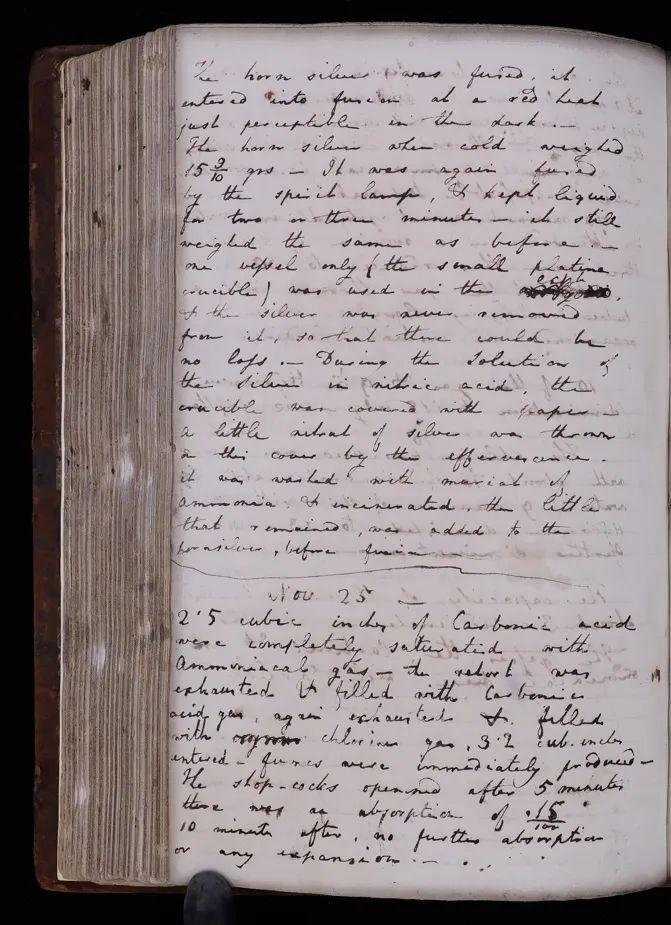 The horn silver was fused, it
entered into fusion at a red heat
just perceptible in the dark. —
The horn silver when cold weighed
15 9/10 grs — It was again fused
by the spirit lamp, & kept liquid
for two or three minutes — it still
weighed the same as before —
one vessel only (the small platina
crucible) was used in the expt,
& the silver was never removed
from it, so that there could be
no loss. — During the solution of
the silver in nitric acid, the
crucible was covered with paper
a little nitrat of silver was thrown
on this cover by the effervescence.
it was washed with muriat of
ammonia & incinerated, the little
that remained, was added to the
hornsilver, before fusion —
Nov. 25 —
2.5 cubic inches of Carbonic acid
were completely saturated with
Ammoniacal gas — the retort was
exhausted & filled with Carbonic
acid gas, again exhausted & filled
with chlorine gas, 3.2 cub. inches
entered — fumes were immediately produced —
The stop-cocks openned after 5 minutes
there was an absorption of .15/100
10 minutes after, no further absorption
or any expansion. —